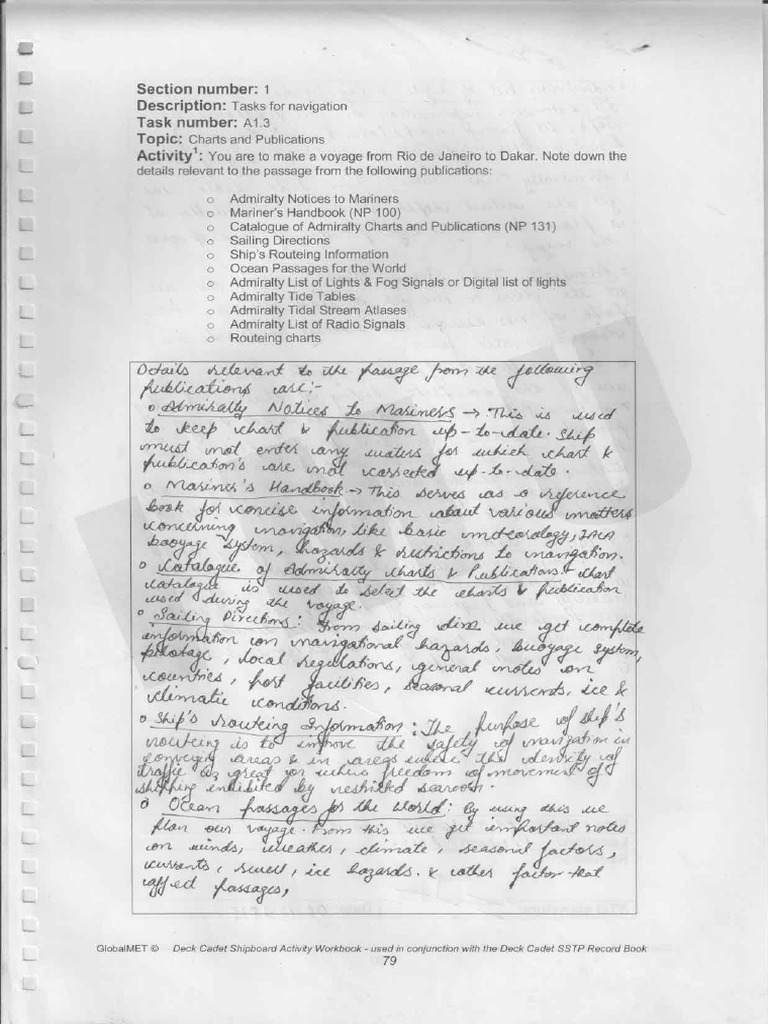 Section number: 1
Description: Tasks for navigation
Task number: A1.3
Topic: Charts and Publications
Activity1: You are to make a voyage from Rio de Janeiro to Dakar. Note down the
details relevant to the passage from the following publications:
o Admiralty Notices to Mariners
o Mariner's Handbook (NP 100)
o Catalogue of Admiralty Charts and Publications (NP 131)
o Sailing Directions
o Ship's Routeing Information
o Ocean Passages for the World
o Admiralty List of Lights & Fog Signals or Digital list of lights
o Admiralty Tide Tables
o Admiralty Tidal Stream Atlases
o Admiralty List of Radio Signals
o Routeing charts
Details relevant to the passage from the following
publications are:-
o Admiralty Notices to Mariners → This is used
to keep chart & publication up-to-date. Ship
must not enter any waters for which chart &
publication's are not corrected up-to-date.
o Mariner's Handbook → This serves as a reference
book for concise information about various matters
concerning navigation, like basic meteorology, IALA
buoyage system, hazards & restrictions to navigation.
o Catalogue of Admiralty charts & Publications: chart
catalogue is used to select the charts & publication
used during the voyage.
o Sailing Directions: From sailing dirn we get complete
information on navigational hazards, buoyage system,
pilotage, local regulations, general notes on
countries, port facilities, seasonal currents, ice &
climatic conditions.
o Ship's routeing Information: The purpose of ship's
routeing is to improve the safety of navigation in
converging areas & in areas where the density of
traffic is great or where freedom of movement of
shipping inhibited by restricted searoom.
o Ocean passages for the World: By using this we
plan our voyage. From this we get important notes
on winds, weather, climate, seasonal factors,
currents, swell, ice hazards. & other factor that
affed passages,
GlobalMET © Deck Cadet Shipboard Activity Workbook - used in conjunction with the Deck Cadet SSTP Record Book
79